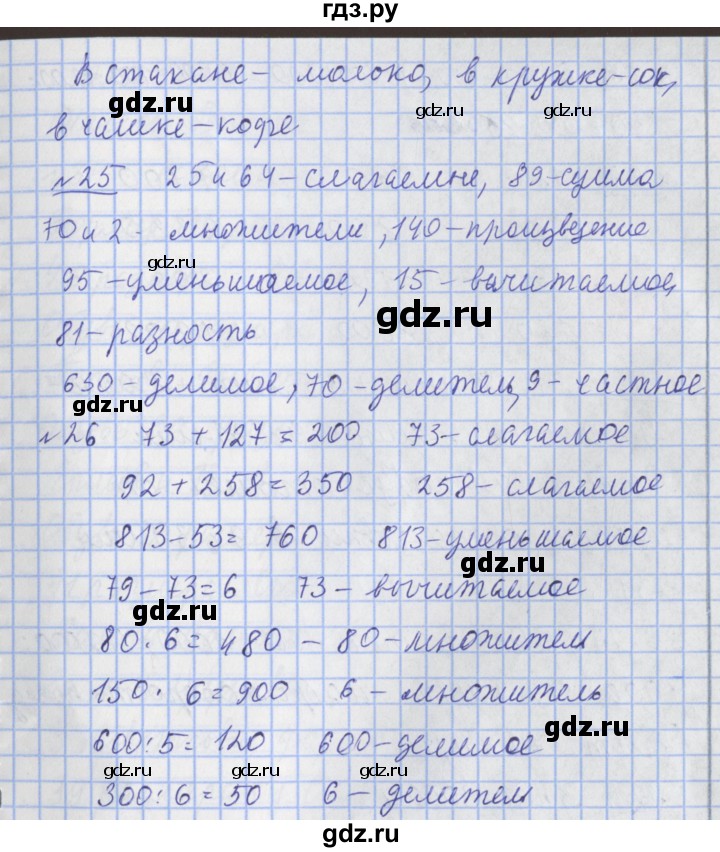 гдз.ру
В стакане - молоко, в кружке - сок,
gdz.ru
в чашке - кофе
gdz.ru
№25 25 и 64 - слагаемые, 89 - сумма
70 и 2 - множители, 140 - произведение
gdz.ru gdz.ru
95 - уменьшаемое, 15 - вычитаемое,
gdz.ru
81 - разность
630 - делимое, 70 - делитель, 9 - частное
gdz.ru
№26 73 + 127 = 200 73 - слагаемое
92 + 258 = 350 258 - слагаемое
813 - 53 = 760 813 - уменьшаемое
gdz.ru
79 - 73 = 6 73 - вычитаемое
gdz.ru
80 · 6 = 480 - 80 - множитель
150 · 6 = 900 6 - множитель
gdz.ru
600 : 5 = 120 600 - делимое
gdz.ru gdz.ru gdz.ru gdz.ru
300 : 6 = 50 6 - делитель
gdz.ru